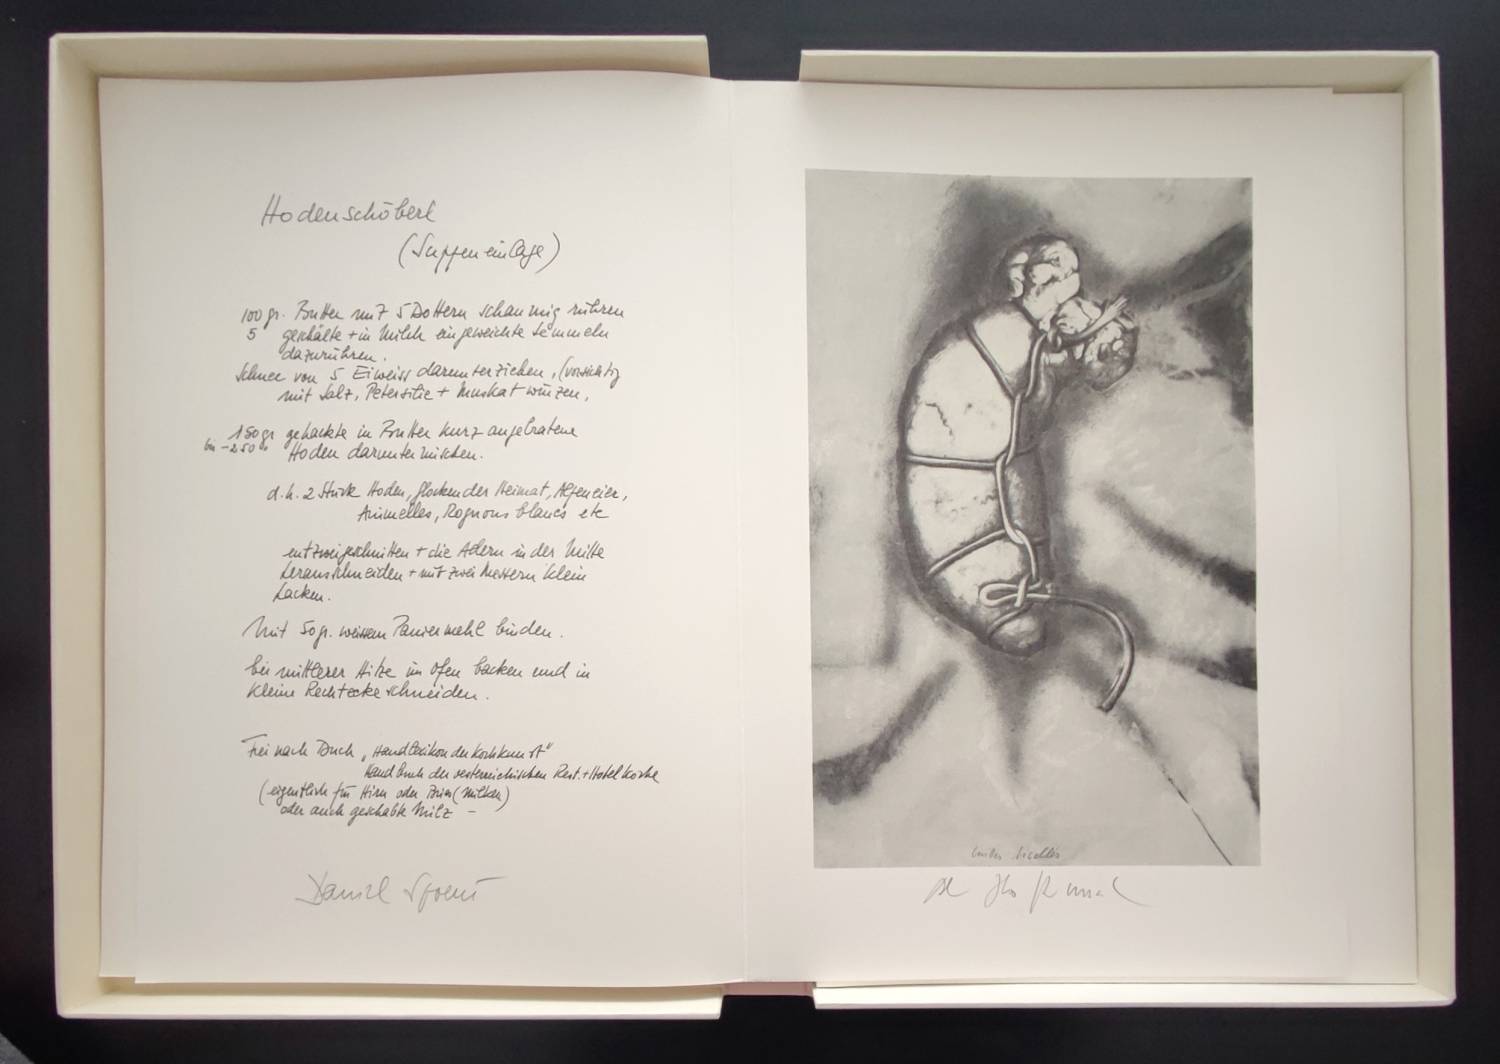 Hodenschöberl
(Suppeneinlage)
100 gr. Butter mit 5 Dottern schaumig rühren
5 geschälte + in Milch eingeweichte Semmeln
dazurühren.
Schnee von 5 Eiweiss darunterziehen, (vorsichtig
mit Salz, Petersilie + Muskat würzen,
150 gr gehackte in Butter kurz angebratene
bis - 250 " Hoden daruntermischen.
d.h. 2 Stück Hoden, Glocken der Heimat,
Animelles, Rognons blancs etc
entzweigeschnitten + die Adern in der Mitte
herausschneiden + mit zwei Messern klein
hacken.
Mit 50 gr. weissem Paniermehl binden.
bei mittlerer Hitze im Ofen backen und in
kleine Rechtecke schneiden.
Frei nach Buch „Handlexikon der Kochkunst"
Handbuch der oesterreichischen Rest. + Hotelköche
(eigentlich für Hirn oder Bries (Milken)
oder auch geschabte Milz –
Daniel Spoerri